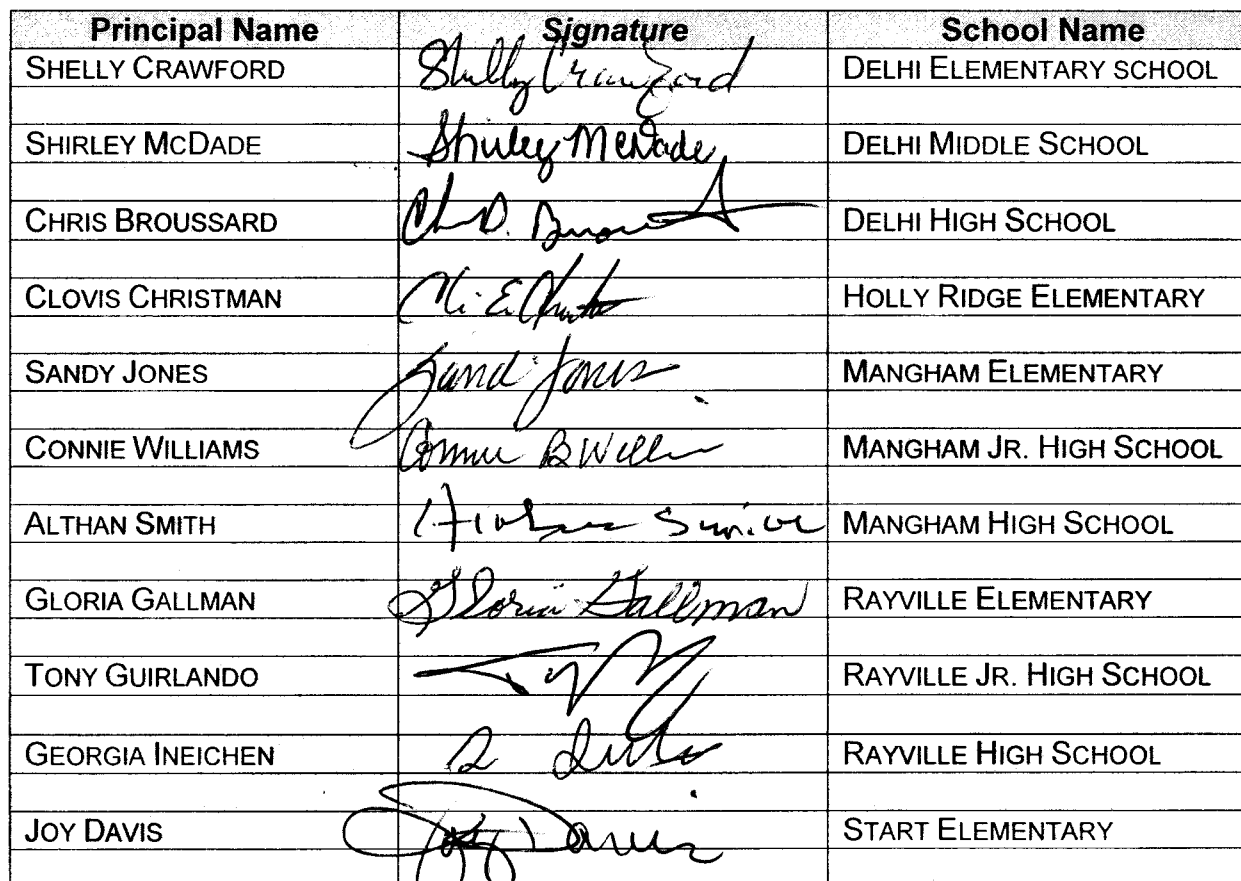 Principal Name Signature School Name
SHELLY CRAWFORD Shelly Crawford DELHI ELEMENTARY SCHOOL
SHIRLEY MCDADE Shirley McDade DELHI MIDDLE SCHOOL
CHRIS BROUSSARD DELHI HIGH SCHOOL
CLOVIS CHRISTMAN HOLLY RIDGE ELEMENTARY
SANDY JONES Jones MANGHAM ELEMENTARY
CONNIE WILLIAMS Connie B MANGHAM JR. HIGH SCHOOL
ALTHAN SMITH MANGHAM HIGH SCHOOL
GLORIA GALLMAN Gloria Gallman RAYVILLE ELEMENTARY
TONY GUIRLANDO RAYVILLE JR. HIGH SCHOOL
GEORGIA INEICHEN RAYVILLE HIGH SCHOOL
JOY DAVIS Joy Davis START ELEMENTARY